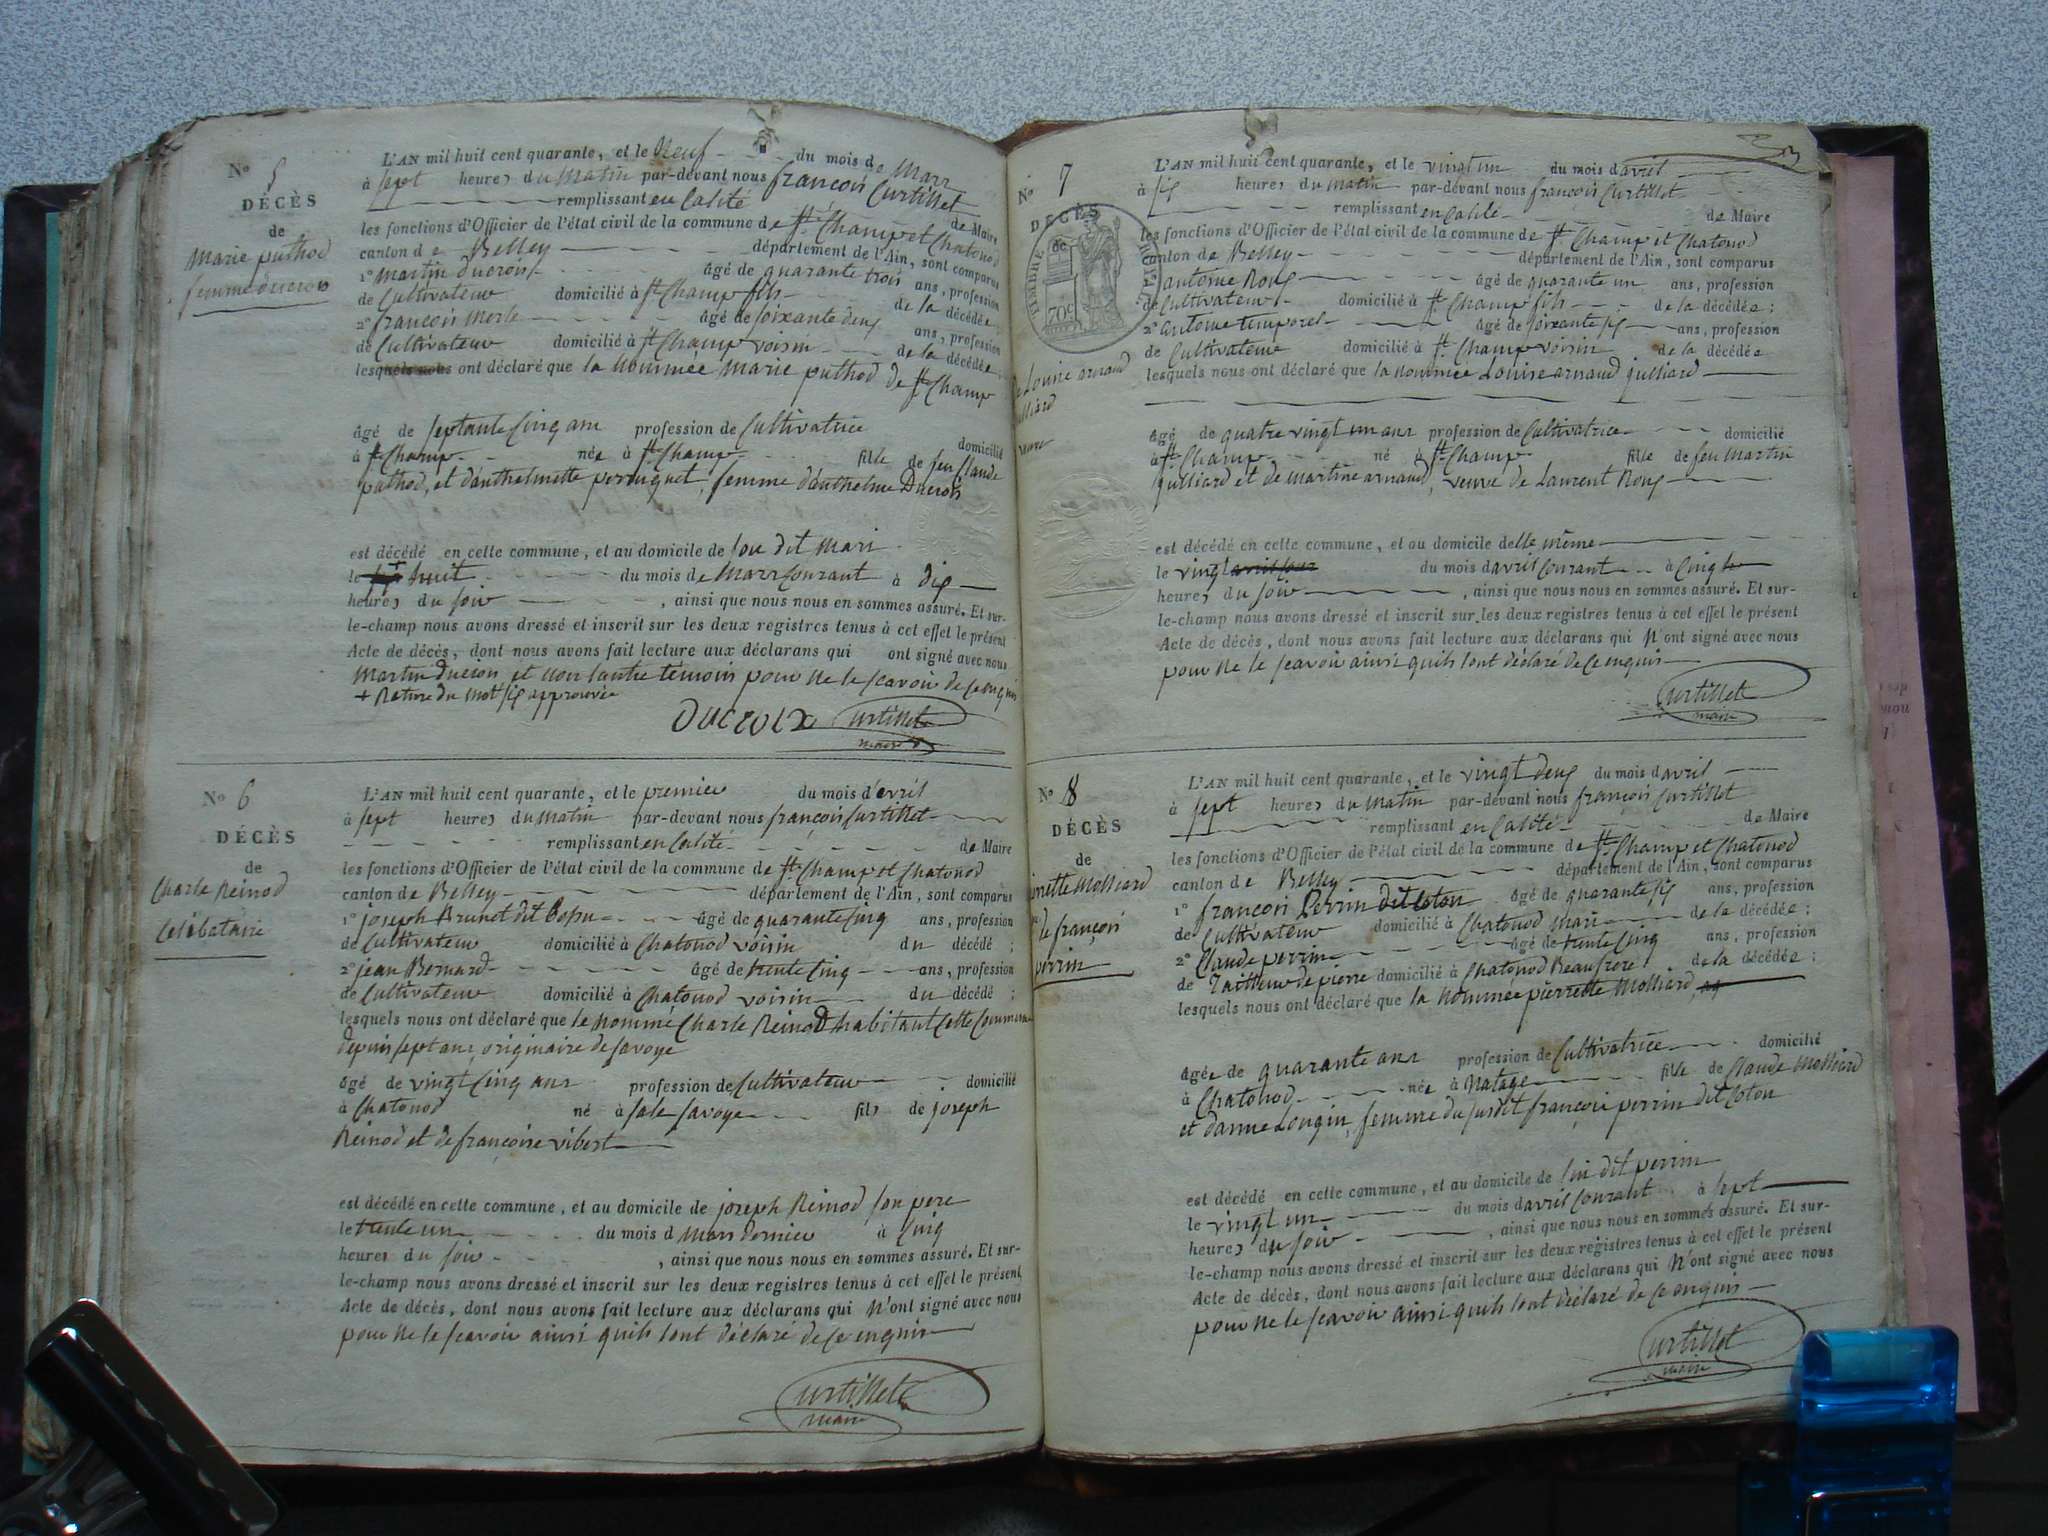 No 5
DÉCÈS
de
Marie puthod
femme ducrois
L'AN mil huit cent quarante, et le Neuf du mois de Mars
à sept heures du Matin par-devant nous françois Curtillet
remplissant en Calité de Maire
les fonctions d'Officier de l'état civil de la commune de St. Champ et Chatonod
canton de Belley département de l'Ain, sont comparus
1° Martin ducroix âgé de quarante trois ans, profession
de Cultivateur domicilié à St Champ fils de la décédée ;
2° françois Merle âgé de soixante deux ans, profession
de Cultivateur domicilié à St Champ voisin de la décédée ;
lesquels nous ont déclaré que la Nommée Marie puthod de St Champ
âgé de septante Cinq ans profession de Cultivatrice domicilié
à St Champ née à St Champ fille de feu Claude
puthod, et d'anthelmette perruquet, femme d'anthelme Ducrois
est décédé en cette commune, et au domicile de son dit Mari
le huit du mois de Mars Courant à dix
heures du soir , ainsi que nous nous en sommes assuré. Et sur-
le-champ nous avons dressé et inscrit sur les deux registres tenus à cet effet le présent
Acte de décès, dont nous avons fait lecture aux déclarans qui ont signé avec nous
Martin Ducrois et non lautre témoin pour Ne le scavoir de ce enquis
+ Rature du Mot six approuvée
DUCroix Curtillet
maire
No 6
DÉCÈS
de
Charle Reinod
Celibataire
L'AN mil huit cent quarante, et le premier du mois d'avril
à sept heures du Matin par-devant nous françois Curtillet
remplissant en Calité de Maire
les fonctions d'Officier de l'état civil de la commune de St. Champ et Chatonod
canton de Belley département de l'Ain, sont comparus
1° joseph Brunet dit Bossu âgé de quarante Cinq ans, profession
de Cultivateur domicilié à Chatonod voisin du décédé ;
2° jean Bernard âgé de trente Cinq ans, profession
de Cultivateur domicilié à Chatonod voisin du décédé ;
lesquels nous ont déclaré que le Nommé Charle Reinod habitant Cette Commune
depuis sept ans, originaire de savoye
âgé de vingt Cinq ans profession de Cultivateur domicilié
à Chatonod né à sale savoye fils de joseph
Reinod et de françoise vibert
est décédé en cette commune, et au domicile de joseph Reinod son pere
le trente un du mois de Mars dernier à Cinq
heures du soir , ainsi que nous nous en sommes assuré. Et sur-
le-champ nous avons dressé et inscrit sur les deux registres tenus à cet effet le présent
Acte de décès, dont nous avons fait lecture aux déclarans qui N'ont signé avec nous
pour Ne le scavoir ainsi quils l'ont déclaré de ce enquis
Curtillet
maire
No 7
DÉCÈS
de
TIMBRE ROYAL
70c
de Louise arnaud
julliard
veuve
L'AN mil huit cent quarante, et le vingt un du mois d'avril
à six heures du Matin par-devant nous françois Curtillet
remplissant en Calité de Maire
les fonctions d'Officier de l'état civil de la commune de St. Champ et Chatonod
canton de Belley département de l'Ain, sont comparus
1° antoine Roux âgé de quarante un ans, profession
de Cultivateur domicilié à St. Champ fils de la décédée ;
2° antoine temporel âgé de soixante six ans, profession
de Cultivateur domicilié à St. Champ voisin de la décédée
lesquels nous ont déclaré que la nommée Louise arnaud julliard
âgé de quatre vingt un ans profession de Cultivatrice domicilié
à St. Champ né à St. Champ fille de feu Martin
julliard et de Martine arnaud, veuve de Laurent Roux
est décédé en cette commune, et au domicile delle même
le vingt du mois d'avril Courant à Cinq
heures du soir , ainsi que nous nous en sommes assuré. Et sur-
le-champ nous avons dressé et inscrit sur les deux registres tenus à cet effet le présent
Acte de décès, dont nous avons fait lecture aux déclarans qui N'ont signé avec nous
pour Ne le scavoir ainsi quils l'ont déclaré de ce enquis
Curtillet
maire
No 8
DÉCÈS
de
Molliard
de françois
perrin
L'AN mil huit cent quarante, et le vingt deux du mois d'avril
à sept heures du Matin par-devant nous françois Curtillet
remplissant en Calité de Maire
les fonctions d'Officier de l'état civil de la commune de St. Champ et Chatonod
canton de Belley département de l'Ain, sont comparus
1° françois Perrin dit Coton âgé de quarante six ans, profession
de Cultivateur domicilié à Chatonod Mari de la décédée ;
2° Claude perrin âgé de trente Cinq ans, profession
de Tailleur de pierre domicilié à Chatonod Beaufrere de la décédée ;
lesquels nous ont déclaré que la Nommée pierrette Molliard
âgée de quarante ans profession de Cultivatrice domicilié
à Chatonod née à Natage fille de Claude Molliard
et d'anne Longin, femme du susdit françois perrin dit Coton
est décédé en cette commune, et au domicile de sur dit perrin
le vingt un du mois d'avril Courant à sept
heures du soir , ainsi que nous nous en sommes assuré. Et sur-
le-champ nous avons dressé et inscrit sur les deux registres tenus à cet effet le présent
Acte de décès, dont nous avons fait lecture aux déclarans qui N'ont signé avec nous
pour Ne le scavoir ainsi quils l'ont déclaré de ce enquis
Curtillet
maire